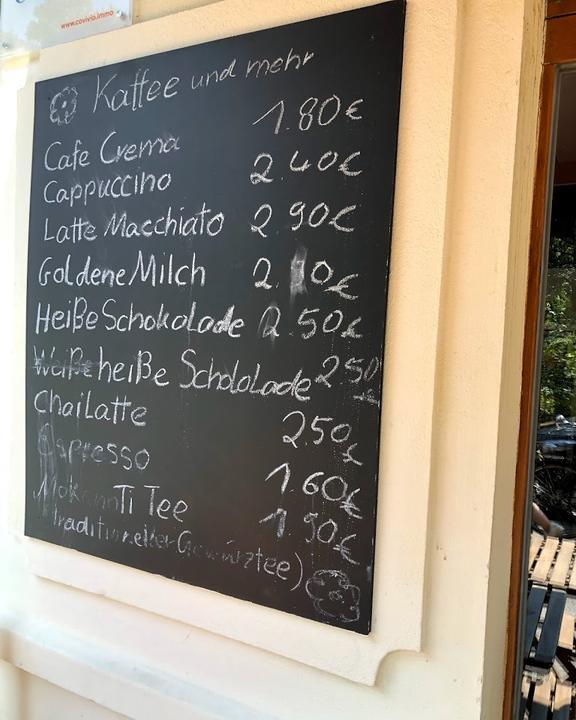 www.covivio.immo
Kaffee und mehr
Cafe Crema 1.80€
Cappuccino 2.40€
Latte Macchiato 2.90€
Goldene Milch 2. 0€
Heiße Schokolade 2.50€
Weiße heiße Schololade 250 €
Chai Latte 2.50€
Espresso 1.60€
Tee 1.50€
traditioneller Gewürztee)